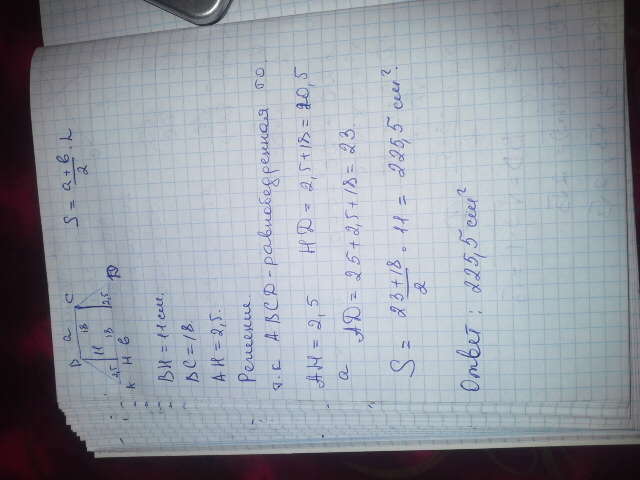 B a C
S = a+b/2 · h
18
11
18
2,5
2,5
H
D
b
BH = 11 см.
BC = 18
AH = 2,5.
Решение
т.к ABCD - равнобедренная то
AH = 2,5 HD = 2,5+18 = 20,5
а AD = 25+2,5+18 = 23.
S = 23+18/2 · 11 = 225,5 см².
Ответ: 225,5 см²